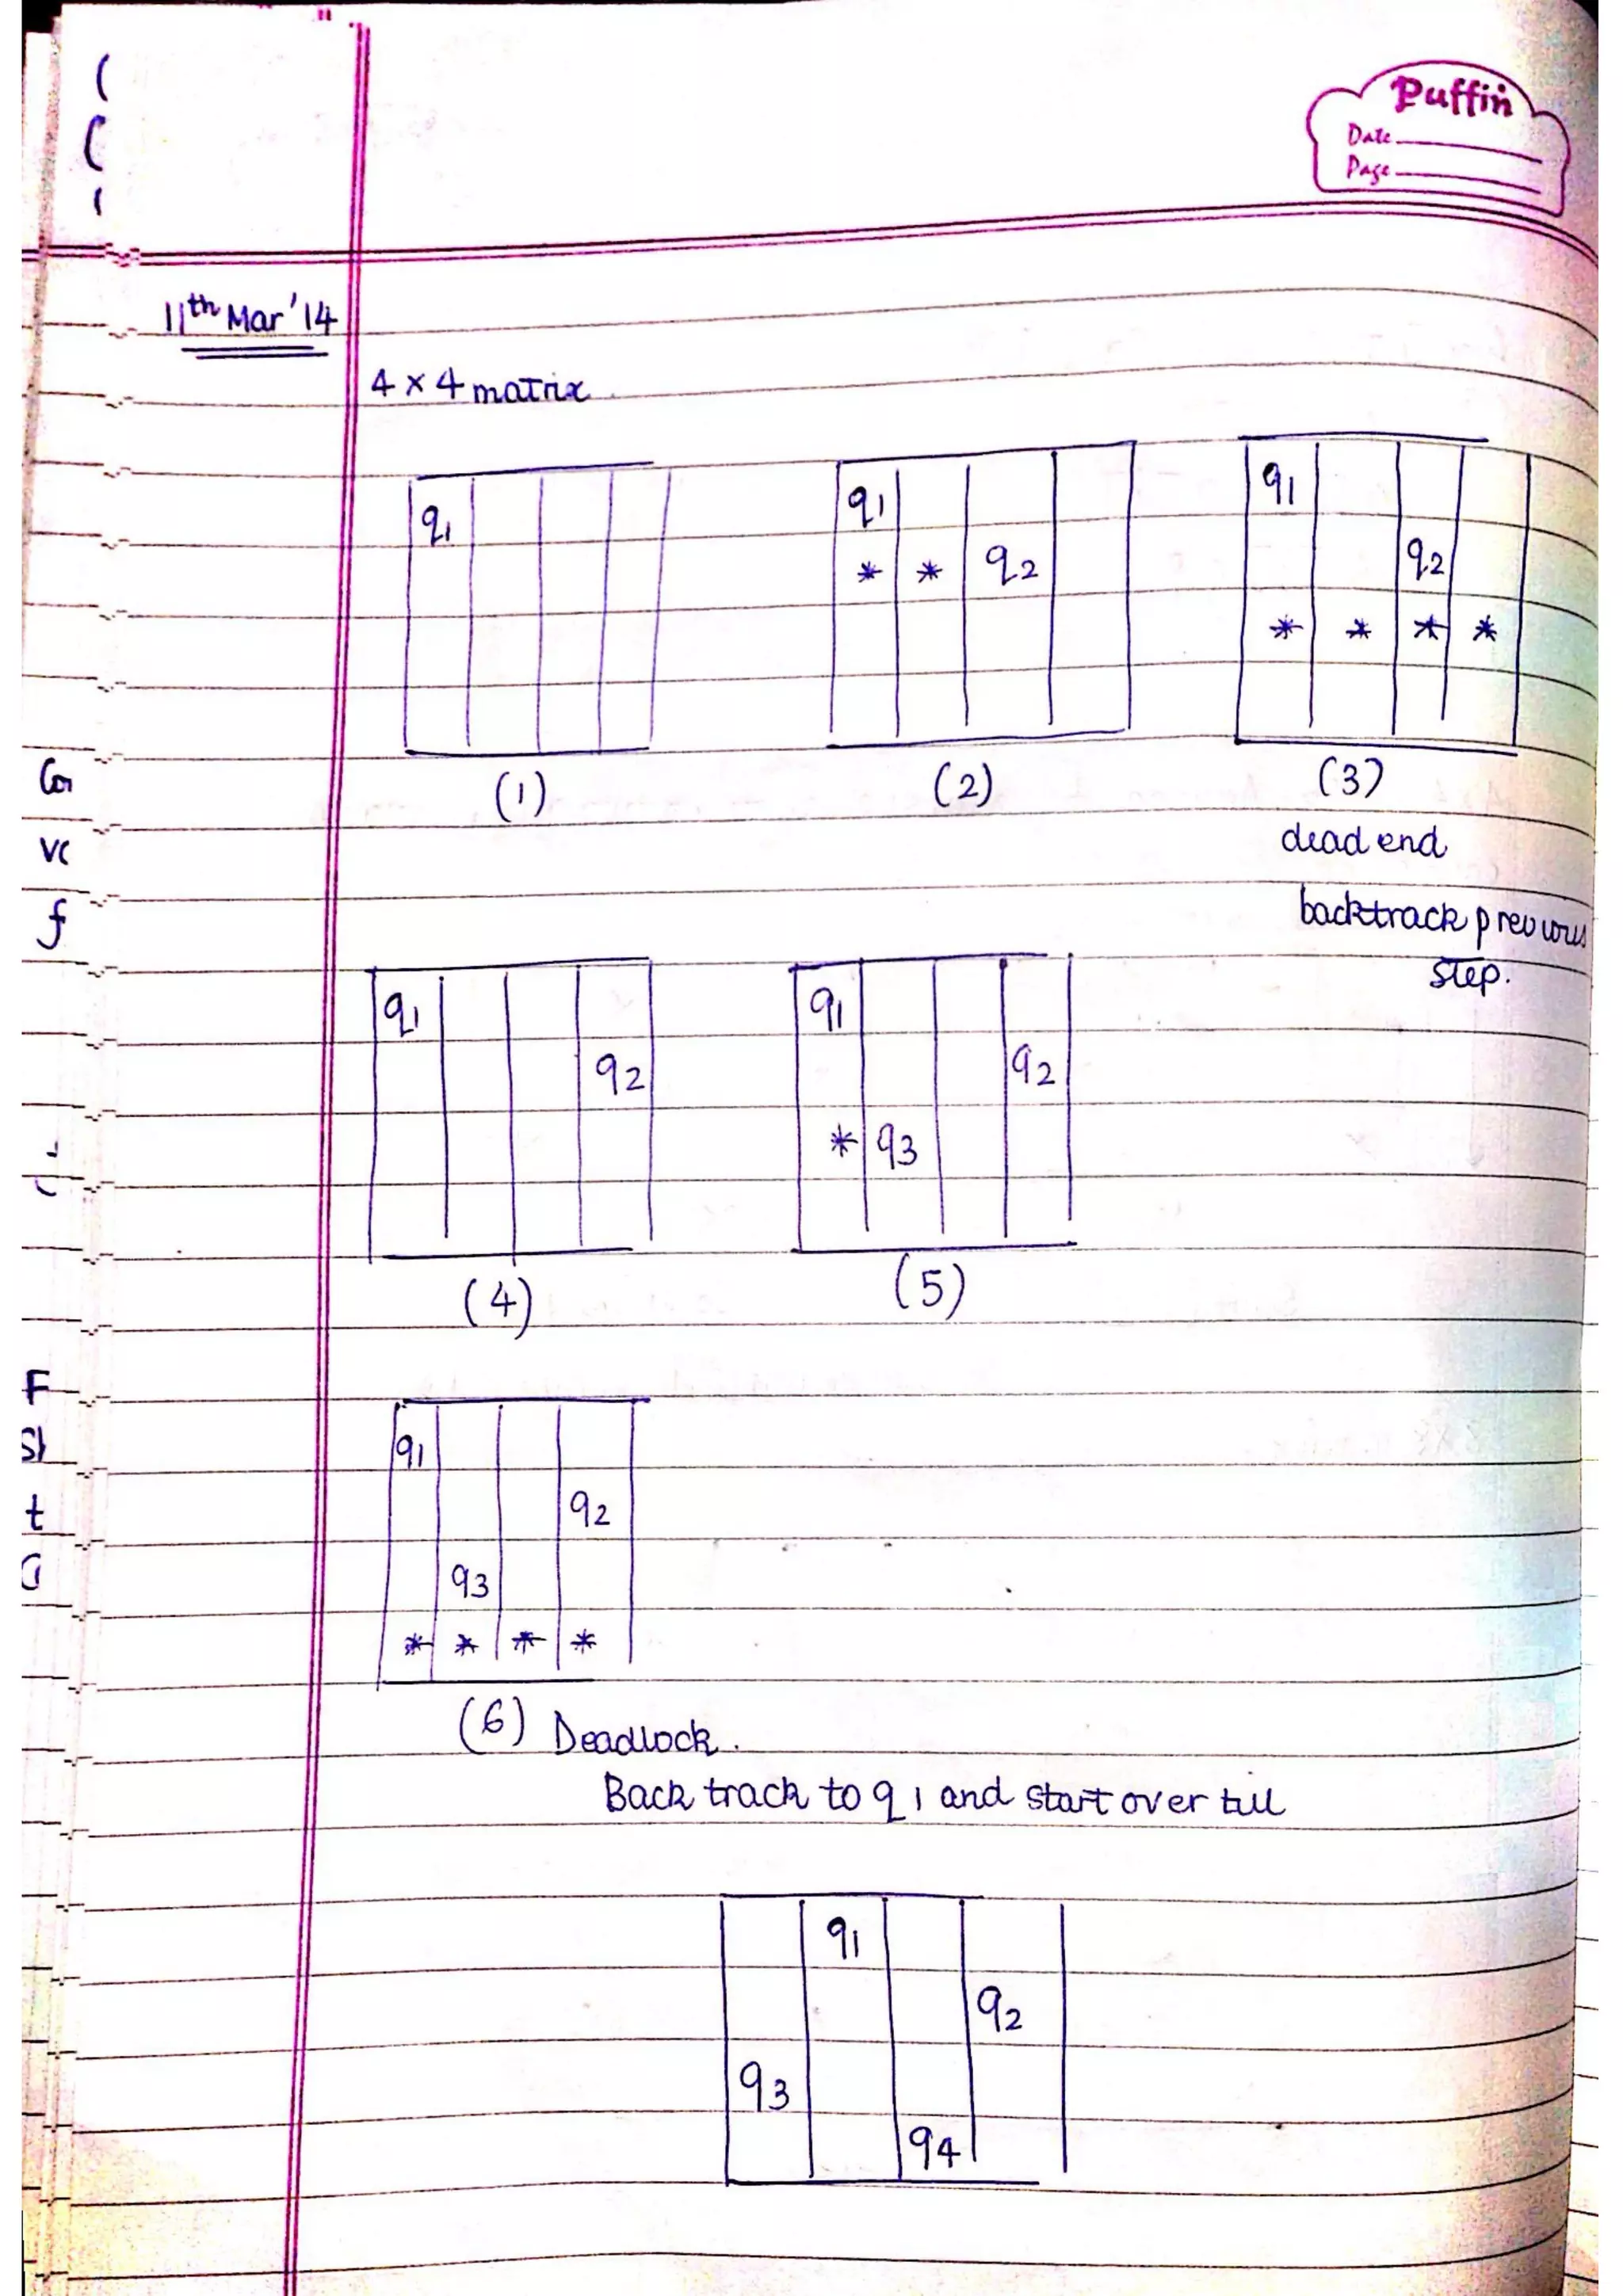 Puffin
Date
Page
11th Mar '14
4 × 4 matrix
q1 q1 q1
* * q2 q2
* * * *
(1) (2) (3)
dead end
backtrack previous
step.
q1 q1
q2 q2
* q3
(4) (5)
q1
q2
q3
* * * *
(6) Deadlock.
Back track to q1 and start over till
q1
q2
q3
q4